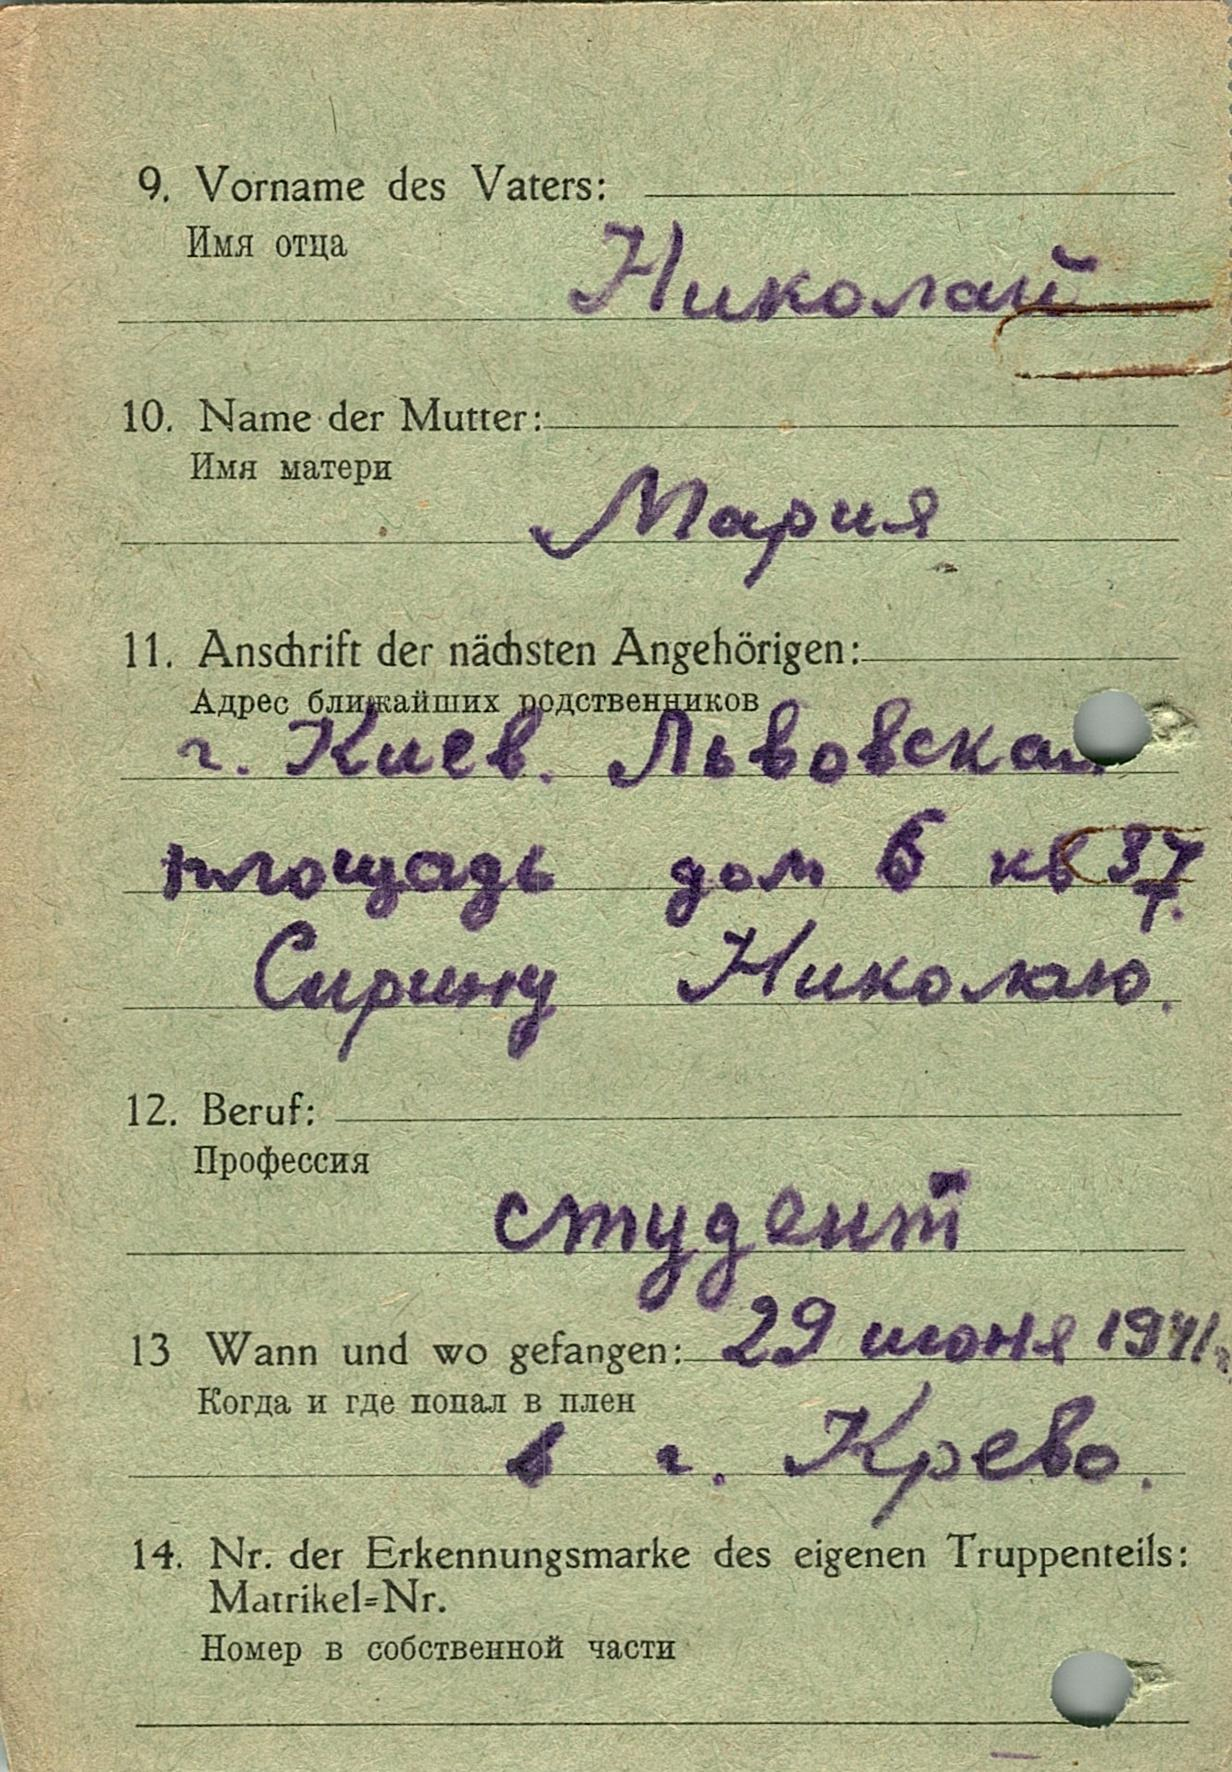 9. Vorname des Vaters:
Имя отца
Николай
10. Name der Mutter:
Имя матери
Мария
11. Anschrift der nächsten Angehörigen:
Адрес ближайших родственников
г. Киев. Львовская
площадь дом 6 кв 37
Т.
Сирину Николаю.
12. Beruf:
Профессия
студент
13 Wann und wo gefangen: 29 июня 1941г.
Когда и где попал в плен
в г. Крево.
14. Nr. der Erkennungsmarke des eigenen Truppenteils:
Matrikel=Nr.
Номер в собственной части